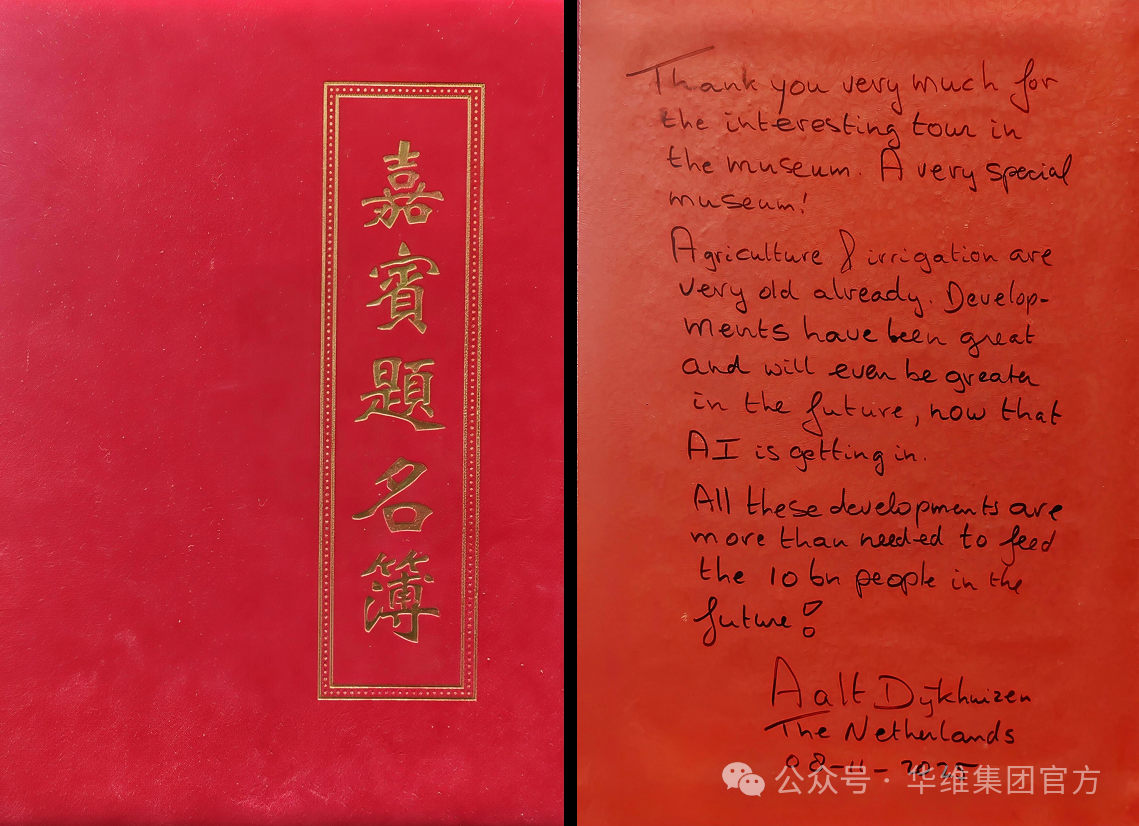 嘉賓題名簿
Thank you very much for
the interesting tour in
the museum. A very special
museum!
Agriculture & irrigation are
very old already. Develop-
ments have been great
and will even be greater
in the future, now that
AI is getting in.
All these developments are
more than needed to feed
the 10 bn people in the
future!
Aalt Dijkhuizen
The Netherlands
08-11-2025
公众号·华维集团官方